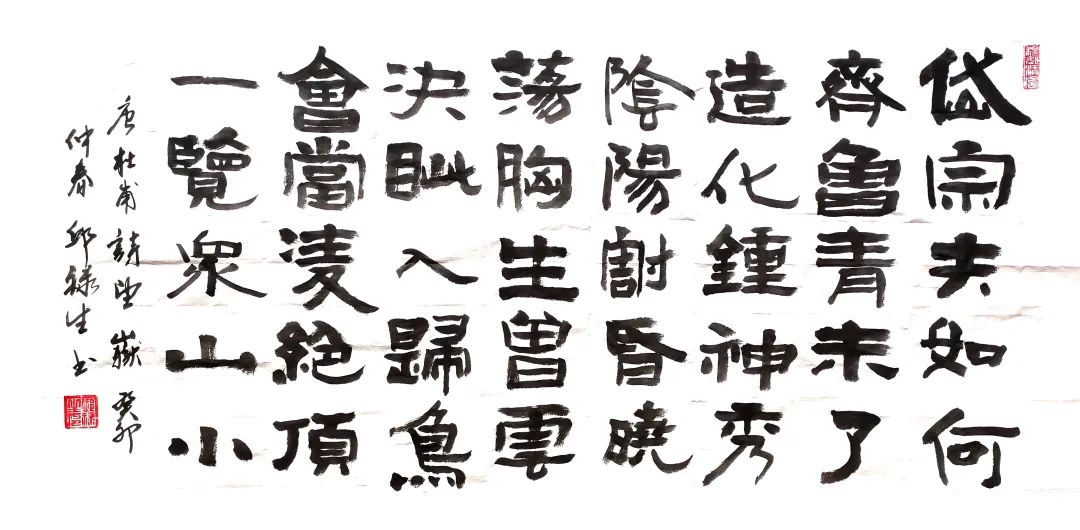 岱宗夫如何
齊魯青未了
造化鍾神秀
陰陽割昏曉
蕩胸生曾雲
決眦入歸鳥
會當凌絕頂
一覽衆山小
唐杜甫詩望嶽 癸卯
仲春 邱祿生书